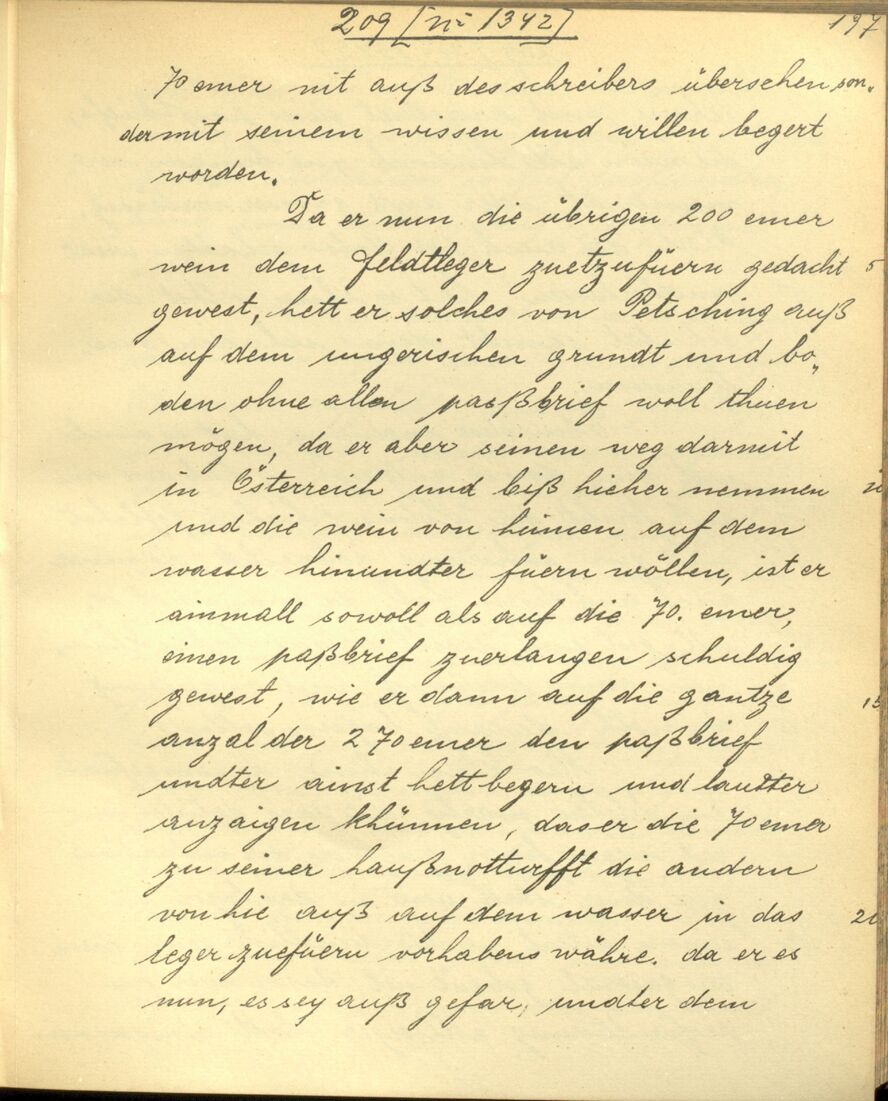 209 [No 1342]
197
70 emer nit auß des schreibers übersehen, son„
der mit seinem wissen und willen begert
worden.
Da er nun die übrigen 200 emer
wein dem feldtleger zuetzufüern gedacht 5
gewest, hett er solches von Petsching auß
auf dem ungerischen grundt und bo„
den ohne allen paßbrief woll thuen
mögen, da er aber seinen weg darmit
in Österreich und biß hieher nemmen 10
und die wein von hinnen auf dem
wasser hinundter füern wöllen, ist er
ainmall sowoll als auf die 70. emer,
einen paßbrief zuerlangen schuldig
gewest, wie er dann auf die gantze 15
anzal der 270 emer den paßbrief
undter ainst hett begern und lautter
anzaigen khünnen, das er die 70 emer
zu seiner haußnotturfft die andern
von hie auß auf dem wasser in das 20
leger zuefüern vorhabens währe. da er es
nun, es sey auß gefar, undter dem